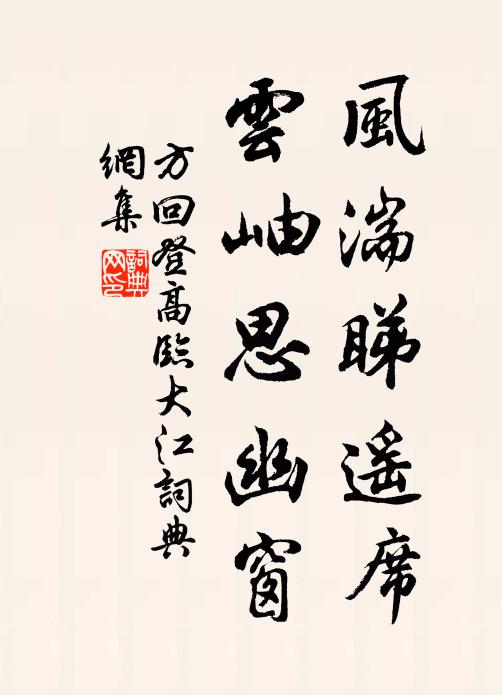 風湍睇遥席
雲岫思幽窗
方回登高臨大江詞典
網集
詞典
网印